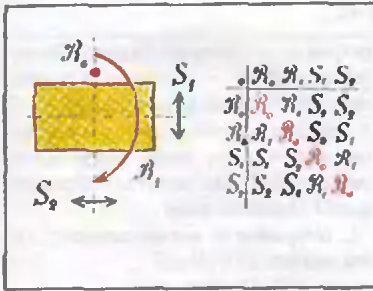 ℛ₀
S₁
ℛ₁
S₂
∘ ℛ₀ ℛ₁ S₁ S₂
ℛ₀ ℛ₀ ℛ₁ S₁ S₂
ℛ₁ ℛ₁ ℛ₀ S₂ S₁
S₁ S₁ S₂ ℛ₀ ℛ₁
S₂ S₂ S₁ ℛ₁ ℛ₀